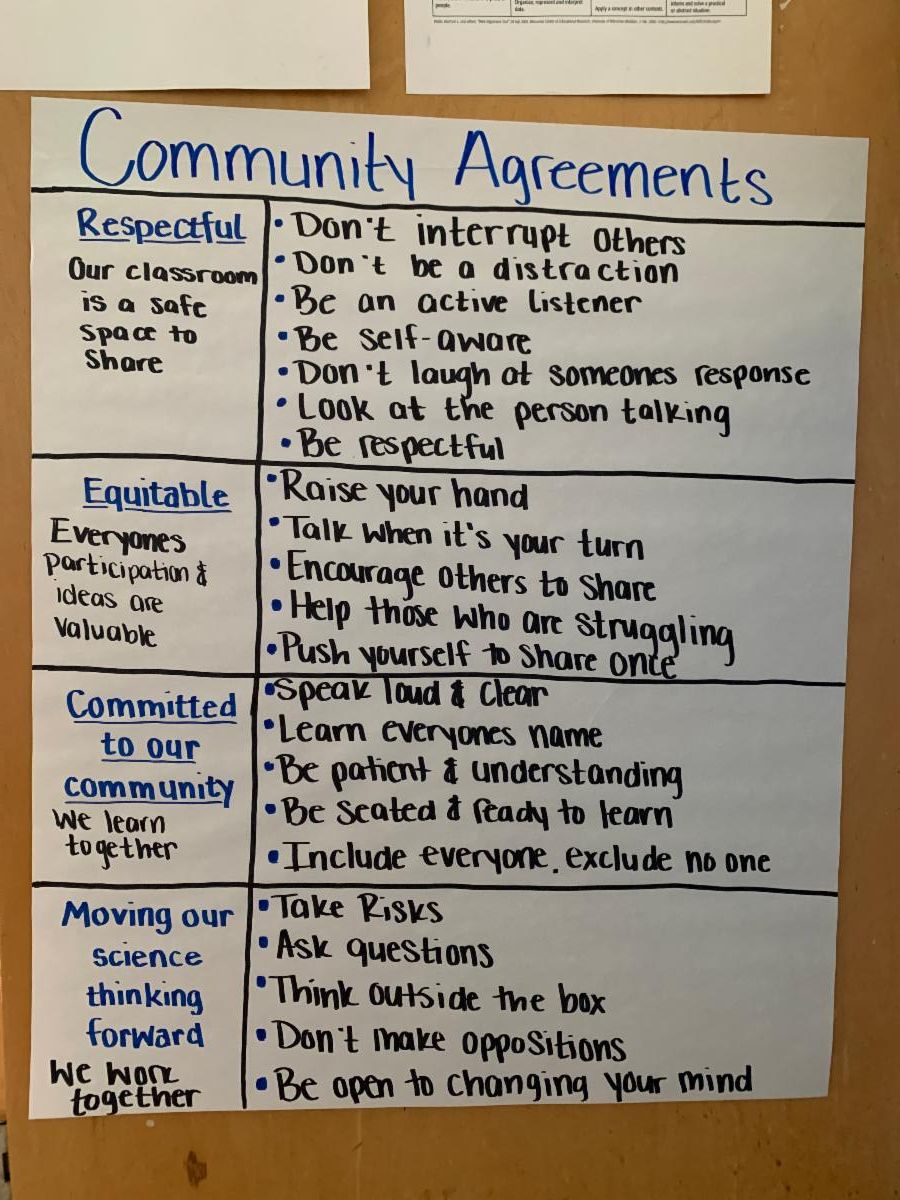 people.
Organize, represent and interpret
data.
Apply a concept in other contexts.
Community Agreements
Respectful
Our classroom
is a safe
space to
Share
• Don't interrupt Others
• Don't be a distraction
• Be an active listener
• Be self-aware
• Don't laugh at someones response
• Look at the person talking
• Be respectful
Equitable
Everyones
Participation &
ideas are
Valuable
• Raise your hand
• Talk when it's your turn
• Encourage others to Share
• Help those who are struggling
• Push yourself to Share once
Committed
to our
community
We learn
together
• Speak loud & Clear
• Learn everyones name
• Be patient & understanding
• Be seated & ready to learn
• Include everyone. exclude no one
Moving our
science
thinking
forward
We work
together
• Take Risks
• Ask questions
• Think outside the box
• Don't make oppositions
• Be open to changing your mind